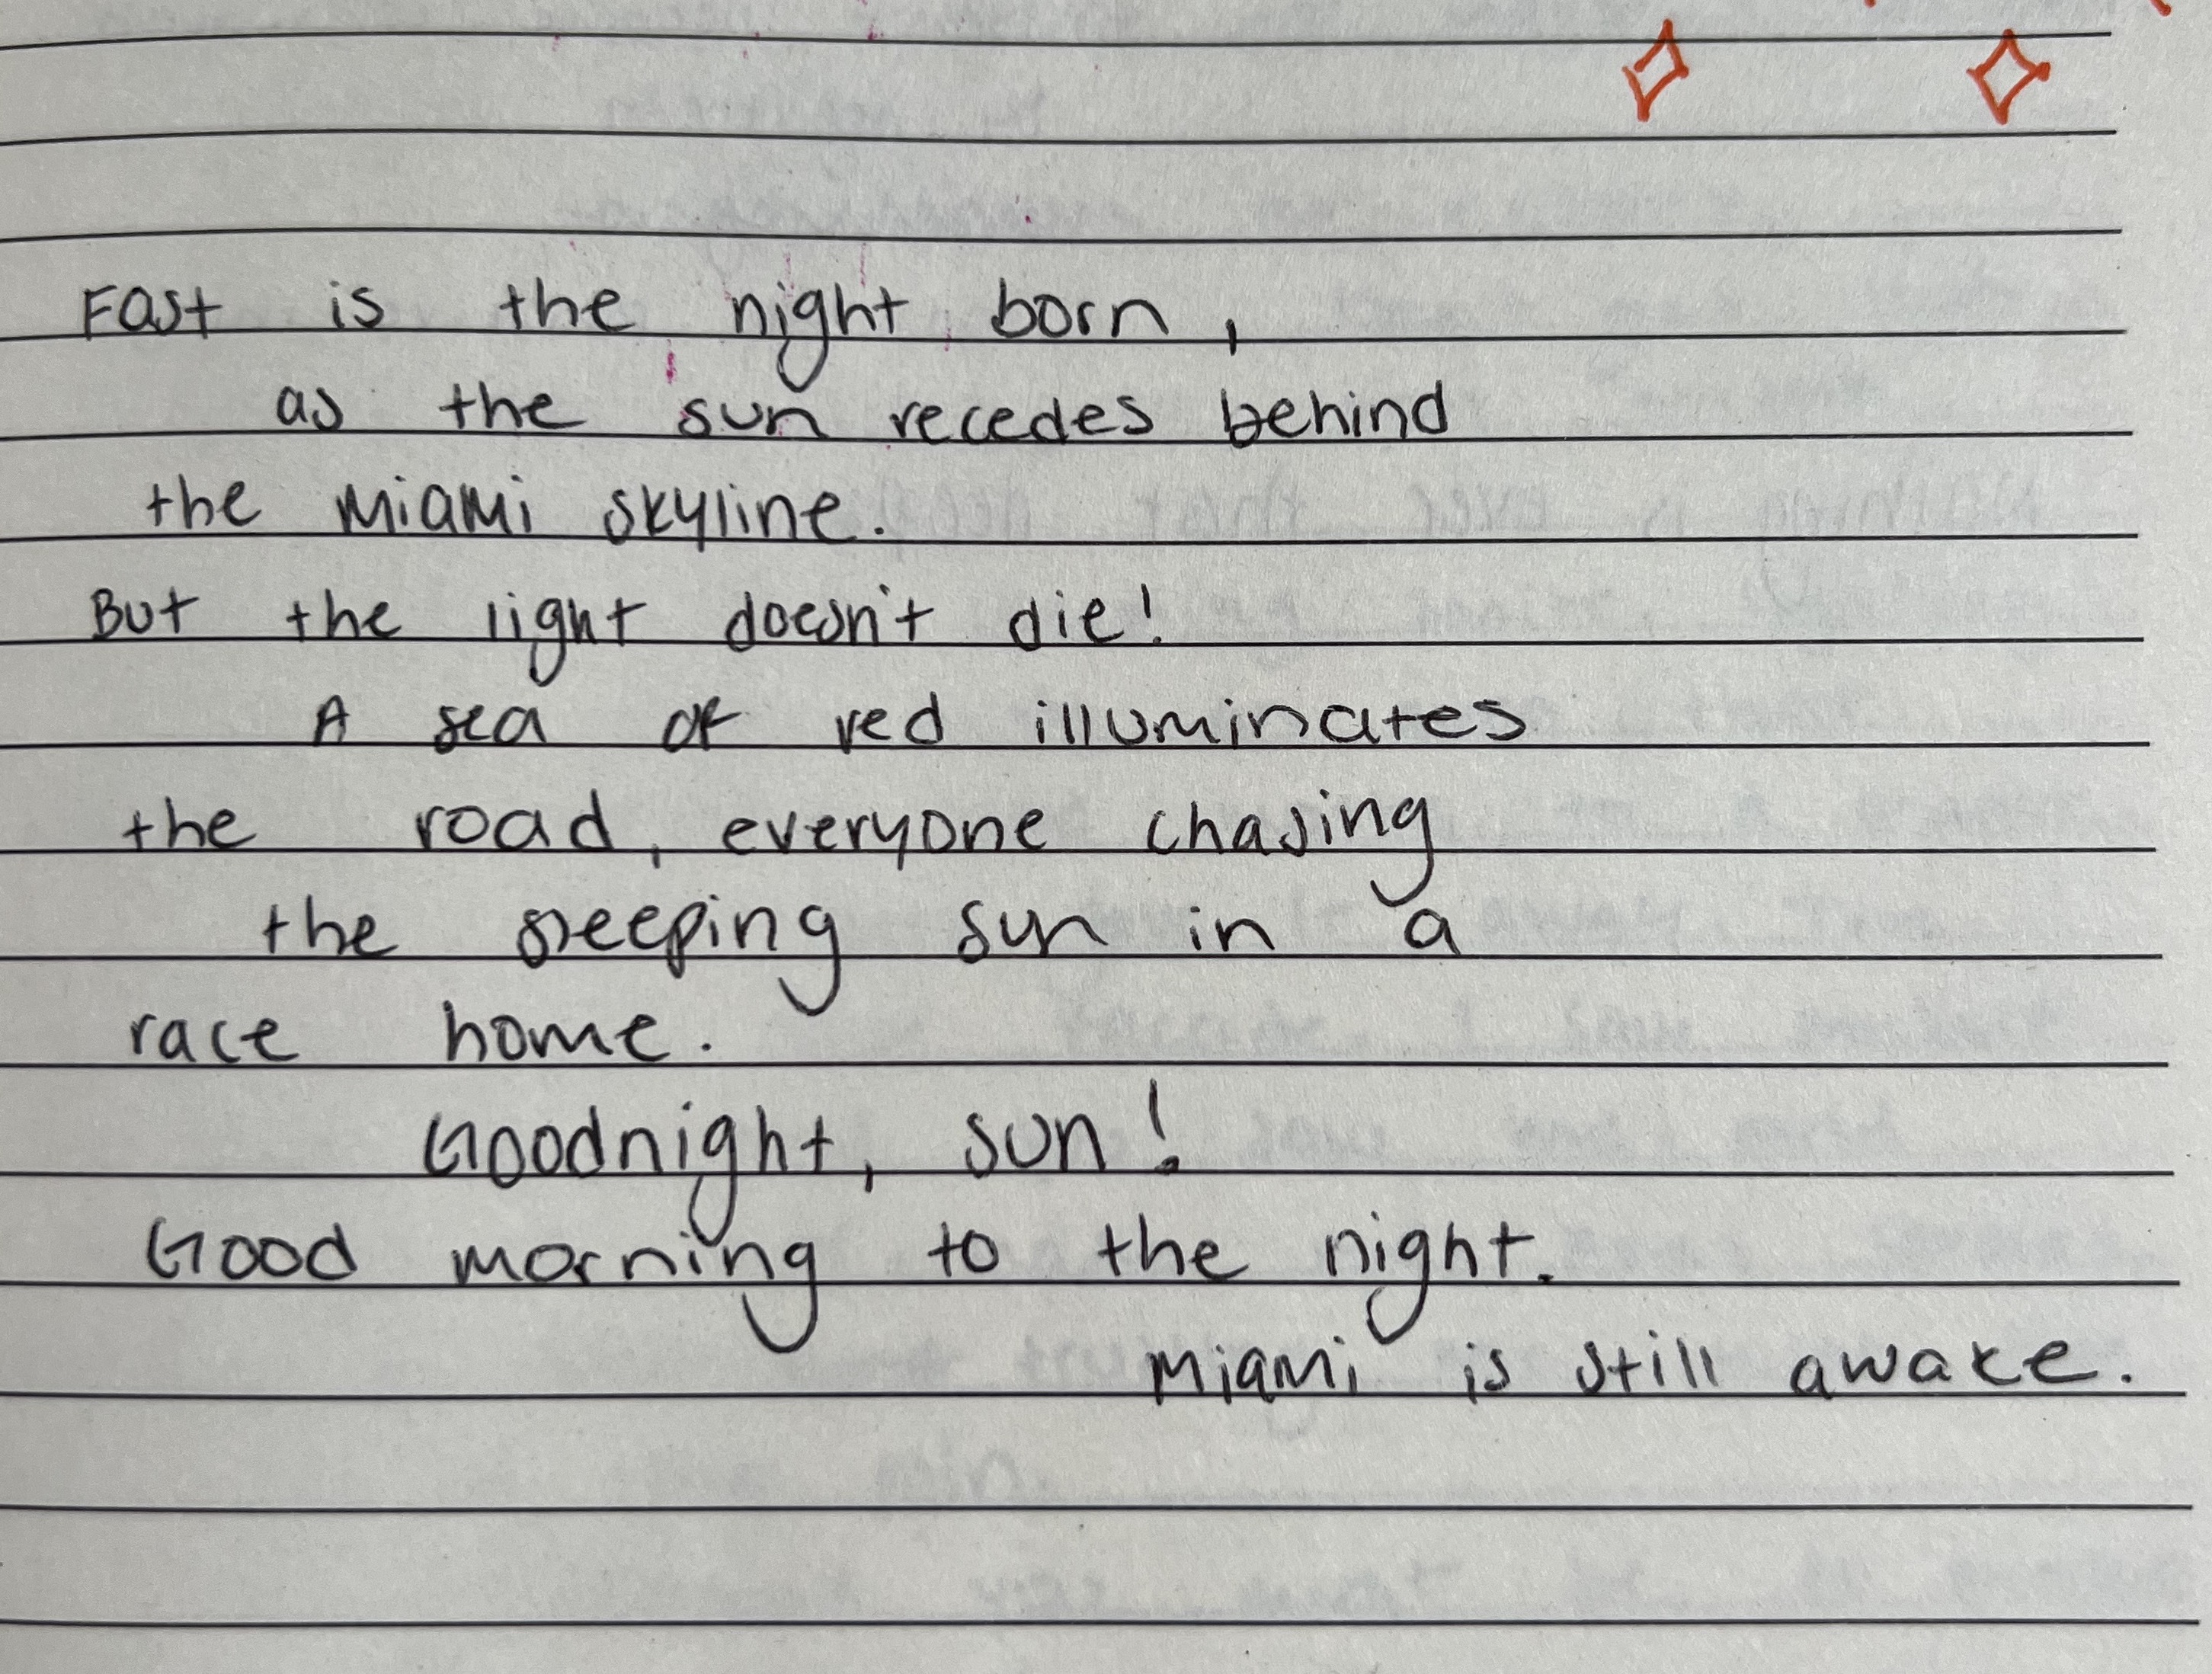 Fast is the night born,
as the sun recedes behind
the Miami skyline.
But the light doesn't die!
A sea of red illuminates
the road, everyone chasing
the sleeping sun in a
race home.
Goodnight, sun!
Good morning to the night.
Miami is still awake.